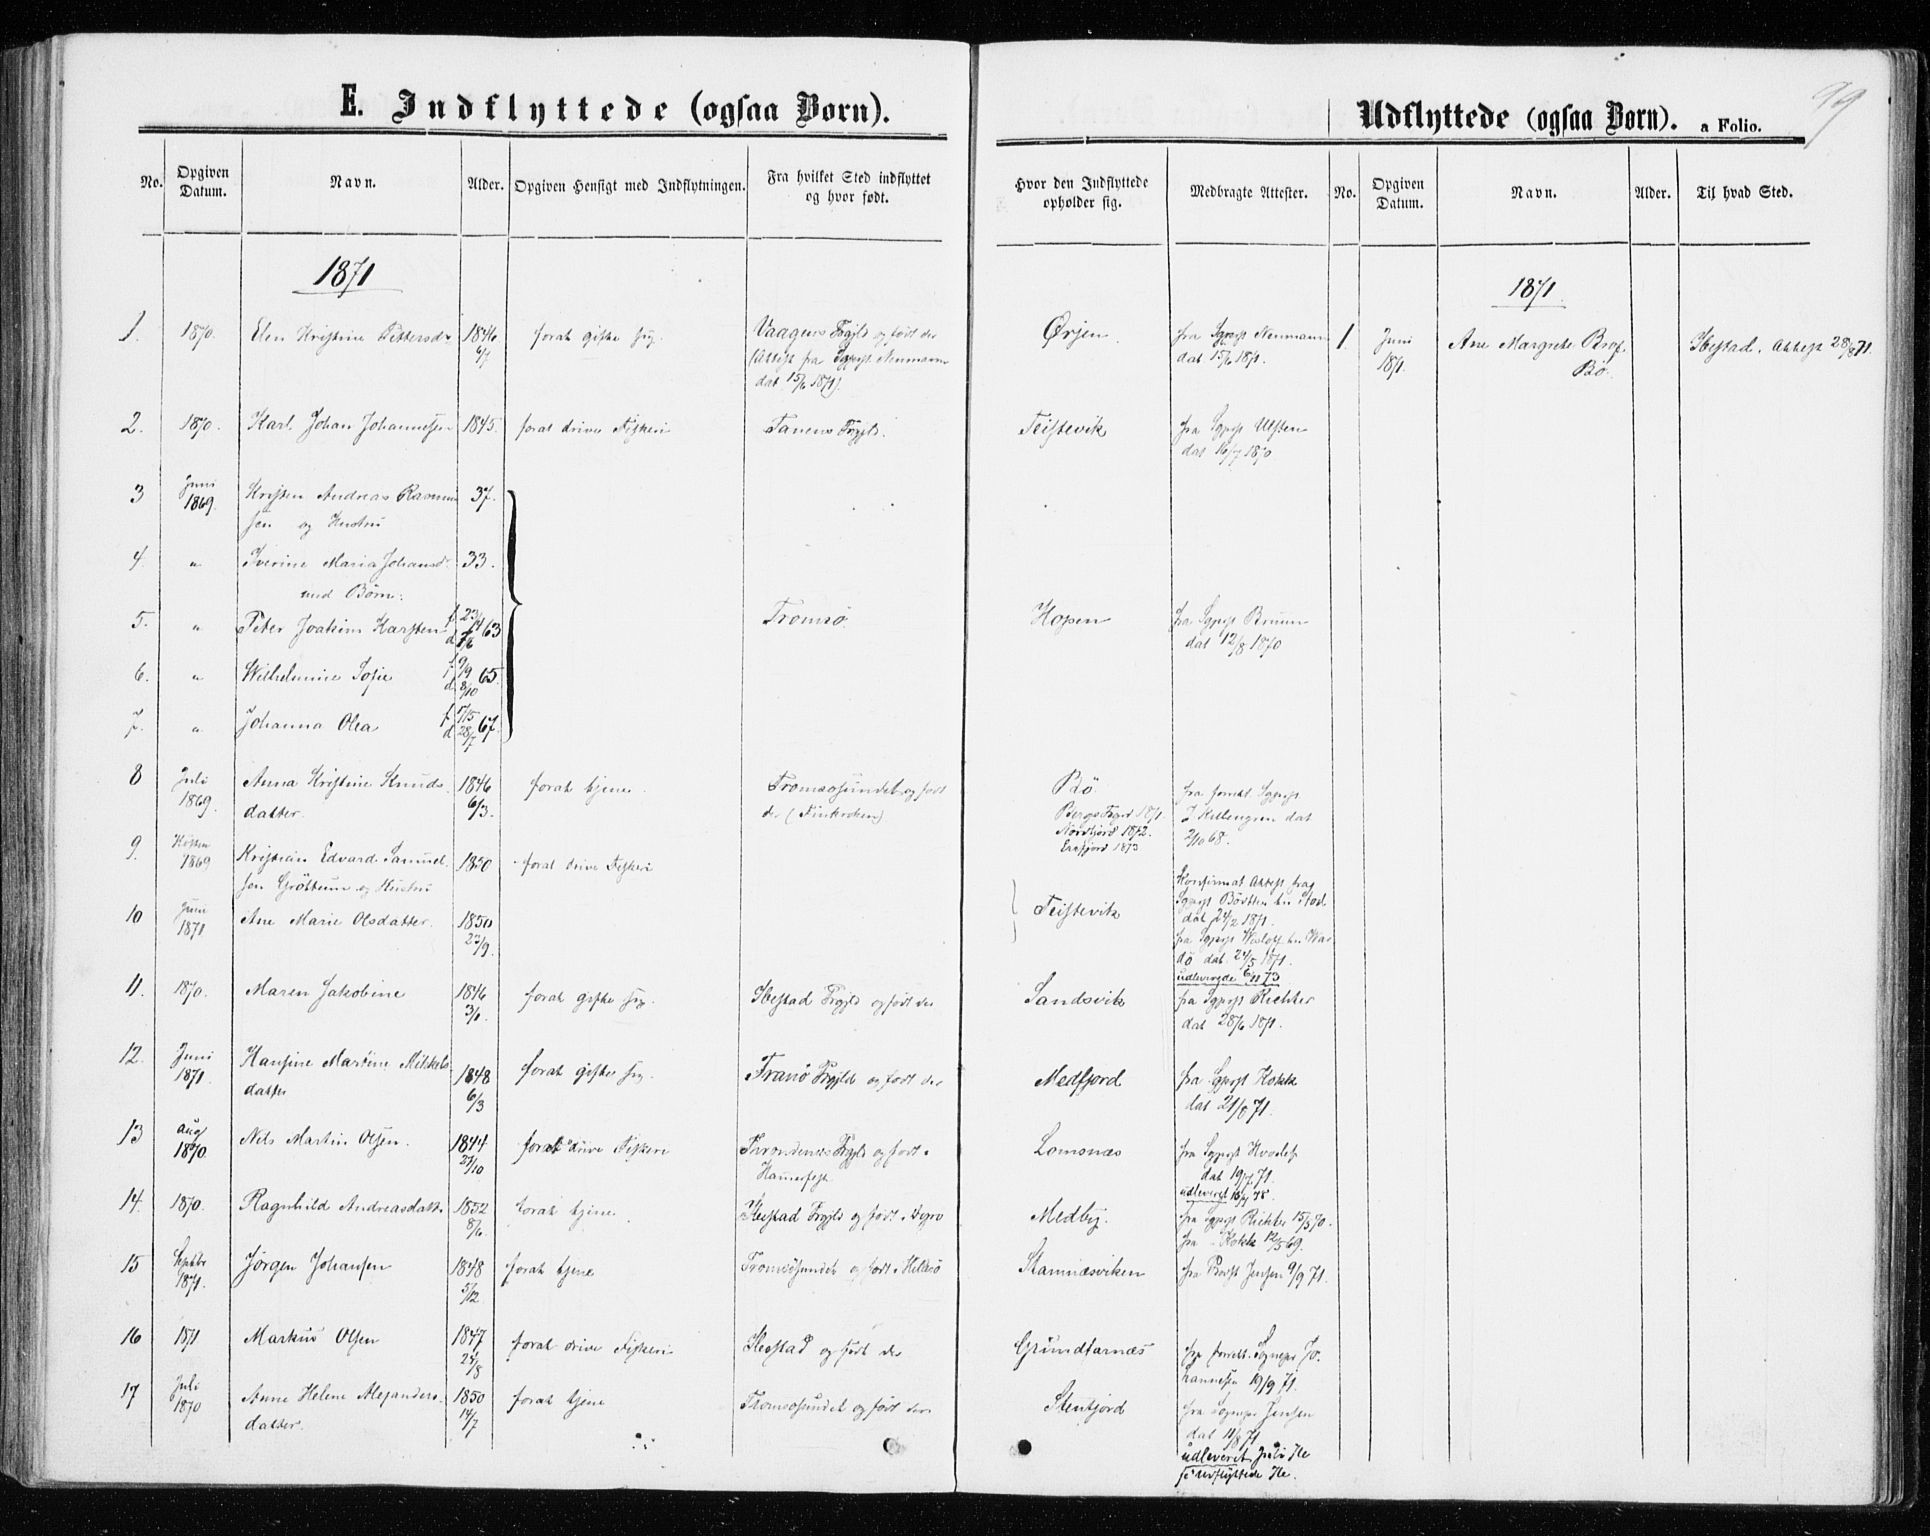 E. Indflyttede (ogsaa Børn).
Udflyttede (ogsaa Børn). a Folio.
99
No. Opgiven Datum. Navn. Alder. Opgiven Hensigt med Indflytningen. Fra hvilket Sted indflyttet og hvor født. Hvor den Indflyttede opholder sig. Medbragte Attester. No. Opgiven Datum. Navn. Alder. Til hvad Sted.
1871
1871
1. 1870. Elen Kristine Pettersd. 1846 6/7 forat gifte sig. Vaagens Prgjld og født der
(Attest fra Sgprst Neumann
dat. 15/6 1871).
Ørjen. fra Sgprst Neumann
dat 15/6 1871.
1. Juni 1871. Ane Margrete
Bø.
Ibestad. Attest 28/8 71.
2. 1870. Karl Johan Johannessen 1845. forat drive Fiskeri Tanens Prgjld. Teistevik fra Sgprst
dat 16/7 1870.
3 Juni 1869. Kristen Andreas Rasmus 37.
sen og Hustru
4. " Iverine Maria Johansd. 33.
med Børn:
5. " Peter Joakim Karsten f. 23/4 63 Tromsø. Hopen fra Sgprst Bruun
dat 12/8 1870
6. " Wilhelmine Sofie f 9/9 65.
d. 8/10
7. " Johanna Olea f 17/5 67.
d 28/7
8 Juli 1869. Anna Kristine Knuds 1846 6/3. forat tjene. Tromsøsundet og født
datter. der (Finkroken)
Bø.
Bergs Sogn 1871.
Nordfjord 1872.
Ersfjord 1873
fra forrett Sgprst
J. Kellengren dat
2/10 68.
9. Høsten 1869 Kristian Edvard Samuel 1850 forat drive Fiskeri
sen Grøttum og Hustru
Konfirmat. Attest fra
Sgprst
dat 24/2 1871.
10 Juni 1871. Ane Marie Olsdatter. 1850 23/9. Teistevik
fra Sgprst
dø dat. 24/5 1871.
udleverede 6/11 73
11. 1870. Maren Jakobine 1846 3/1. forat gifte sig. Ibestad Prgjld og født der Sandsvik fra Sgprst Richter
dat 28/6 1871.
12. Juni 1871. Hansine Martine Mikkels 1848 6/3 forat gifte sig. Tranø Prgjld og født der Medfjord fra Sgprst Kokk
datter
dat 21/8 71.
13 Aug 1870. Nils Martin Olsen. 1844 27/10 forat drive Fiskeri Trondenes Prgjld og født i
Hammerfest
Lomsnæs fra Sgprst Hvoslef
dat 19/7 71.
udleveret 16/4 78.
14. 1870. Ragnhild Andreasdatt. 1852 8/6. forat tjene. Ibestad Prgjld og født i Dyrø Medby. fra Sgprst Richter 15/5 70.
fra " Kokk 12/5 69.
15 Septbr 1871. Jørgen Johansen 1848 5/12 forat tjene Tromsøsundet og født i Helisø Stamnæsviken fra Provst Jensen 9/9 71.
16 1871 Markus Olsen 1847 24/8 forat drive Fiskeri Ibestad og født der Grundfarnæs fra forrett. Sognepr Jo.
hannesen 19/9 71.
17 Juli 1870 Anne Helene Alexanders 1850 14/7 forat tjene Tromsøsundet og født der. Stenfjord fra Sognepr Jensen
datter.
dat 11/8 71
udleveret
se Udflyttede